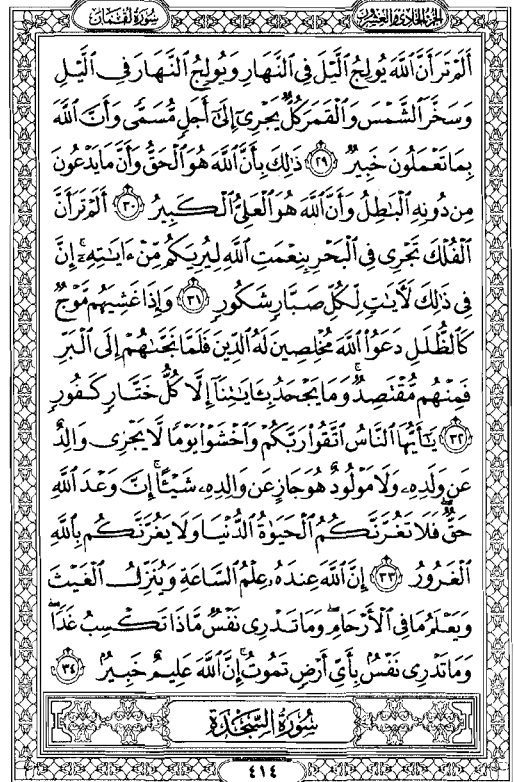 سُورَةُ لُقْمَانَ
الجُزْءُ الحَادِي وَالعِشْرُونَ
أَلَمْ تَرَ أَنَّ ٱللَّهَ يُولِجُ ٱلَّيْلَ فِى ٱلنَّهَارِ وَيُولِجُ ٱلنَّهَارَ فِى ٱلَّيْلِ
وَسَخَّرَ ٱلشَّمْسَ وَٱلْقَمَرَ كُلٌّ يَجْرِىٓ إِلَىٰٓ أَجَلٍ مُّسَمًّى وَأَنَّ ٱللَّهَ
بِمَا تَعْمَلُونَ خَبِيرٌ ٢٩ ذَٰلِكَ بِأَنَّ ٱللَّهَ هُوَ ٱلْحَقُّ وَأَنَّ مَا يَدْعُونَ
مِن دُونِهِ ٱلْبَٰطِلُ وَأَنَّ ٱللَّهَ هُوَ ٱلْعَلِىُّ ٱلْكَبِيرُ ٣٠ أَلَمْ تَرَ أَنَّ
ٱلْفُلْكَ تَجْرِى فِى ٱلْبَحْرِ بِنِعْمَتِ ٱللَّهِ لِيُرِيَكُم مِّنْ ءَايَٰتِهِۦٓ ۚ إِنَّ
فِى ذَٰلِكَ لَءَايَٰتٍ لِّكُلِّ صَبَّارٍ شَكُورٍ ٣١ وَإِذَا غَشِيَهُم مَّوْجٌ
كَٱلظُّلَلِ دَعَوُا۟ ٱللَّهَ مُخْلِصِينَ لَهُ ٱلدِّينَ فَلَمَّا نَجَّىٰهُمْ إِلَى ٱلْبَرِّ
فَمِنْهُم مُّقْتَصِدٌ ۚ وَمَا يَجْحَدُ بِـَٔايَٰتِنَآ إِلَّا كُلُّ خَتَّارٍ كَفُورٍ
٣٢ يَٰٓأَيُّهَا ٱلنَّاسُ ٱتَّقُوا۟ رَبَّكُمْ وَٱخْشَوْا۟ يَوْمًا لَّا يَجْزِى وَالِدٌ
عَن وَلَدِهِۦ وَلَا مَوْلُودٌ هُوَ جَازٍ عَن وَالِدِهِۦ شَيْـًٔا ۚ إِنَّ وَعْدَ ٱللَّهِ
حَقٌّ ۖ فَلَا تَغُرَّنَّكُمُ ٱلْحَيَوٰةُ ٱلدُّنْيَا وَلَا يَغُرَّنَّكُم بِٱللَّهِ
ٱلْغَرُورُ ٣٣ إِنَّ ٱللَّهَ عِندَهُۥ عِلْمُ ٱلسَّاعَةِ وَيُنَزِّلُ ٱلْغَيْثَ
وَيَعْلَمُ مَا فِى ٱلْأَرْحَامِ ۖ وَمَا تَدْرِى نَفْسٌ مَّاذَا تَكْسِبُ غَدًا ۖ
وَمَا تَدْرِى نَفْسٌۢ بِأَىِّ أَرْضٍ تَمُوتُ ۚ إِنَّ ٱللَّهَ عَلِيمٌ خَبِيرٌۢ ٣٤
سُورَةُ السَّجْدَةِ
٤١٤